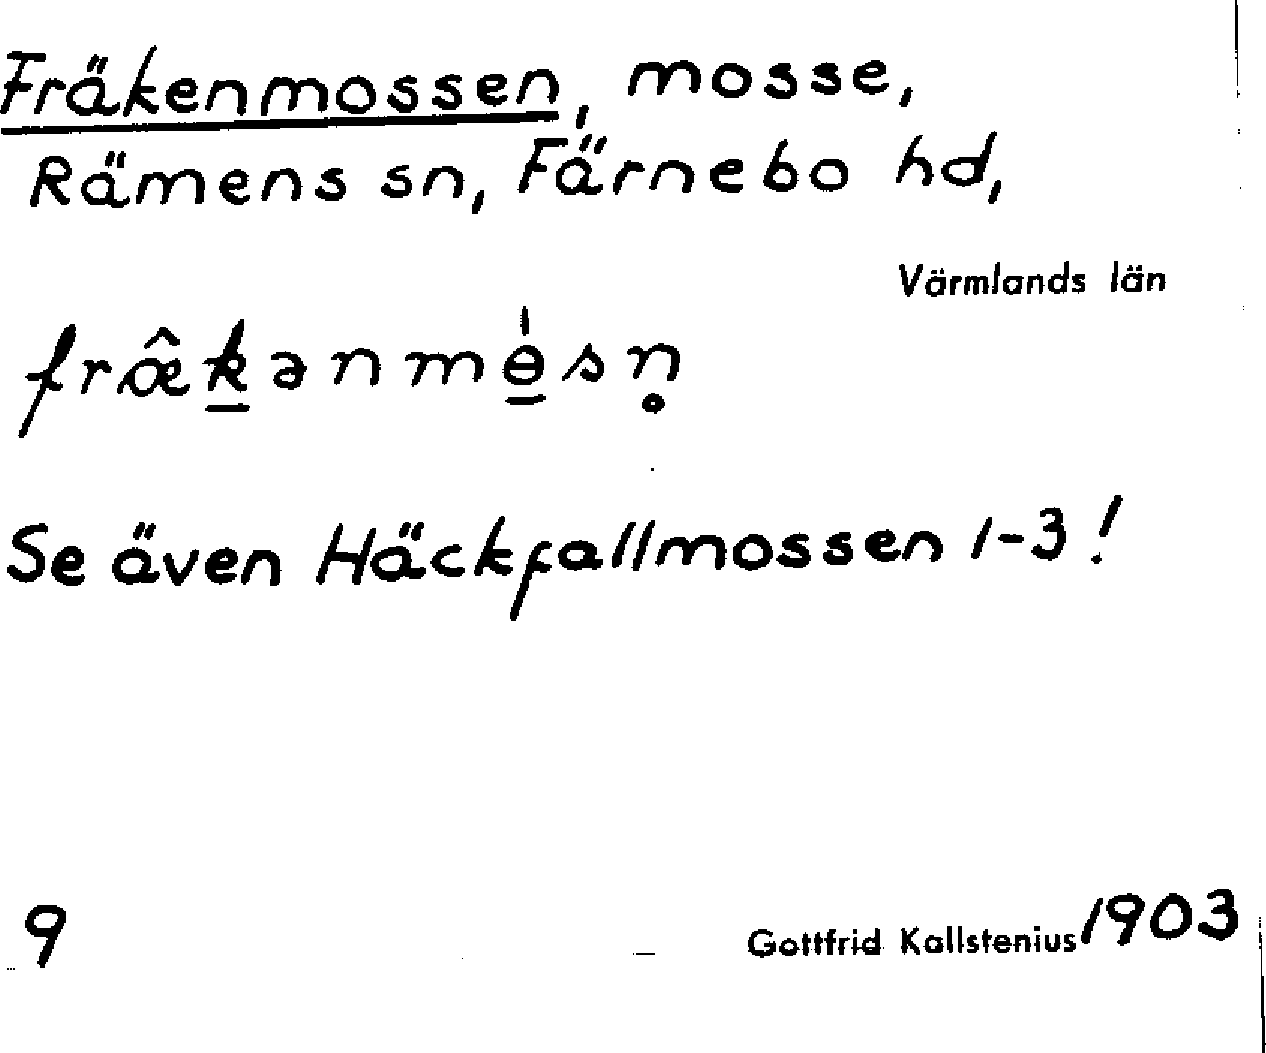 Fräkenmossen, mosse,
Rämens sn, Färnebo hd,
Värmlands län
fræ̂k̲ənmɵ̲̍sn̥
Se även Häckfallmossen 1-3!
9
Gottfrid Kallstenius 1903